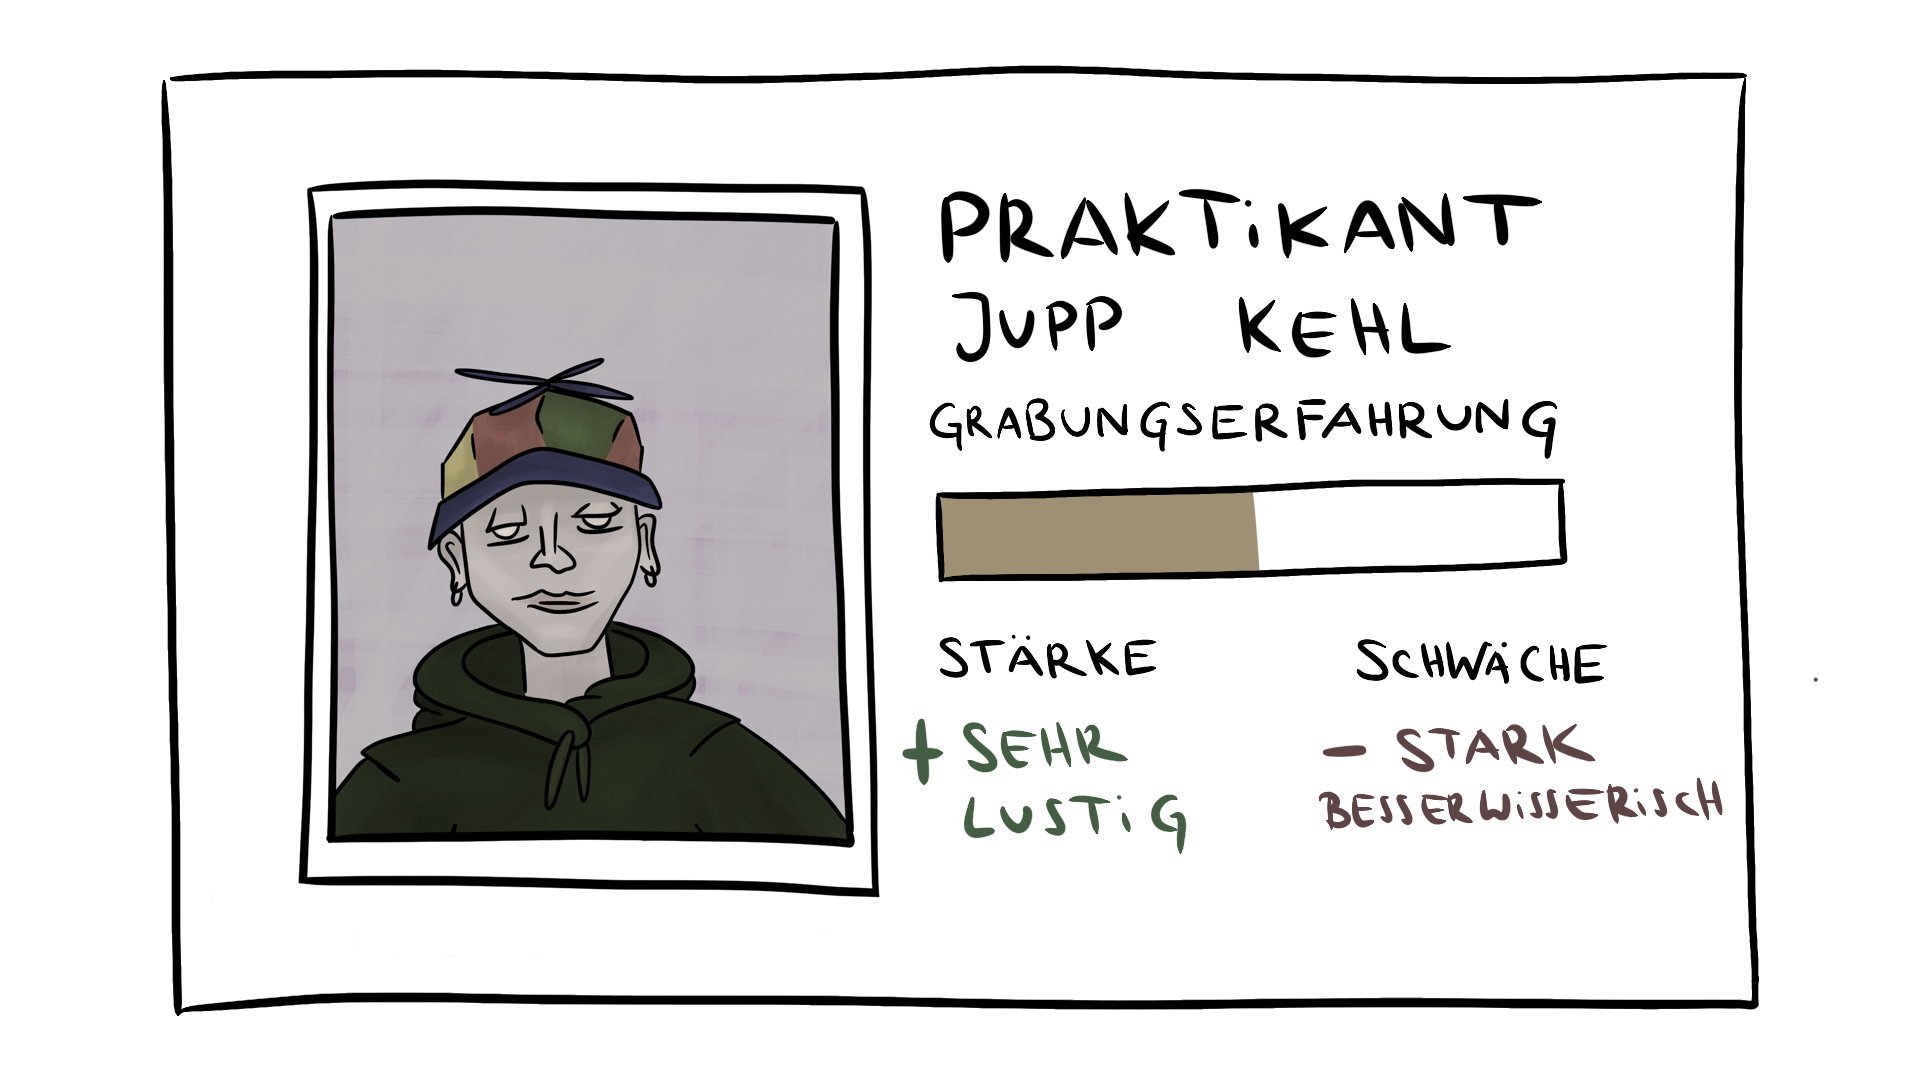 PRAKTiKANT
JUPP KEHL
GRABUNGSERFAHRUNG
STÄRKE
+ SEHR
LUSTiG
SCHWÄCHE
- STARK
BESSERWiSSERiSCH